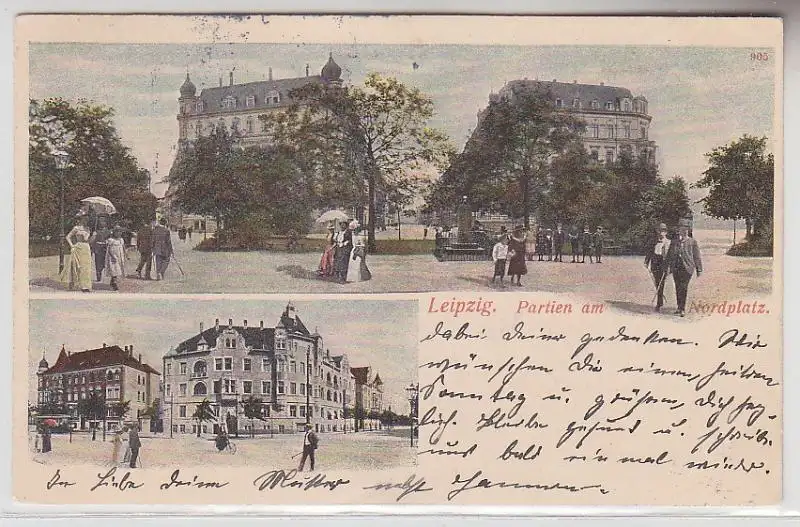 905
Leipzig. Partien am Nordplatz.
dabei Deiner gedenken. Wir
wünschen Dir einen, heitren
Sonntag u. grüßen, Dich herz-
lich. Bleibe gesund u. schreibe
uns bald ein mal wieder.
In Liebe Deine Meister nebst